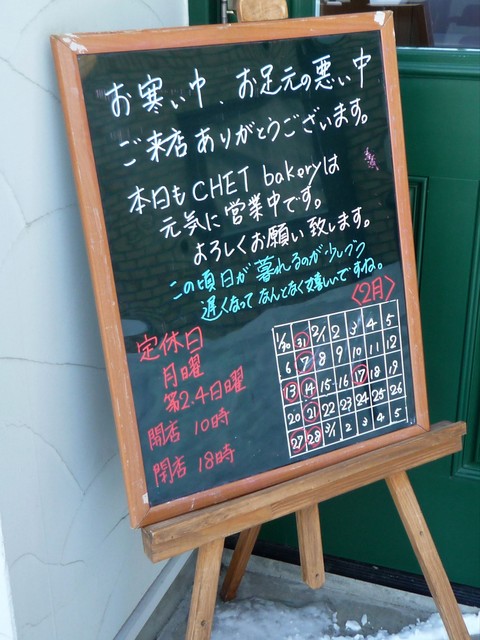 お寒い中、お足元の悪い中
ご来店ありがとうございます。
本日も CHET bakeryは
元気に営業中です。
よろしくお願い致します。
この頃日が暮れるのが少しづつ
遅くなってなんとなく嬉しいですね。
定休日
月曜
第2.4日曜
開店 10時
閉店 18時
<2月>
1/30 31 2/1 2 3 4 5
6 7 8 9 10 11 12
13 14 15 16 17 18 19
20 21 22 23 24 25 26
27 28 3/1 2 3 4 5